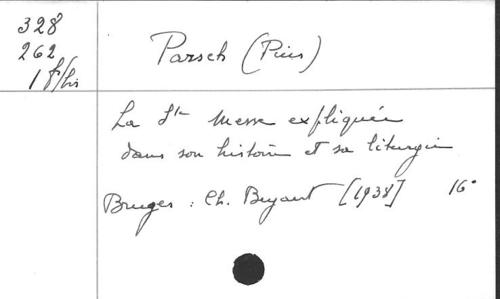 328
262
1 f/bis
Parsch (Pius)
La Ste Messe expliquée
dans son histoire et sa liturgie
Bruges : Ch. Beyaert [1938] 16°